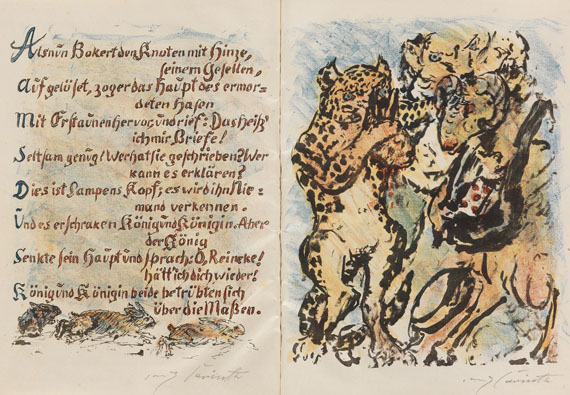 Als nun Bokert den Knoten mit Hinze,
seinem Gesellen,
Aufgelöset, zog er das Haupt des ermor-
deten Hasen
Mit Erstaunen hervor, und rief: Das heiß'
ich mir Briefe!
Seltsam genug! Wer hat sie geschrieben? Wer
kann es erklären?
Dies ist Lampens Kopf; es wird ihn Nie-
mand verkennen.
Und es erschraken König und Königin. Aber
der König
Senkte sein Haupt und sprach: O, Reineke!
hätt' ich dich wieder!
König und Königin beide betrübten sich
über die Maßen.